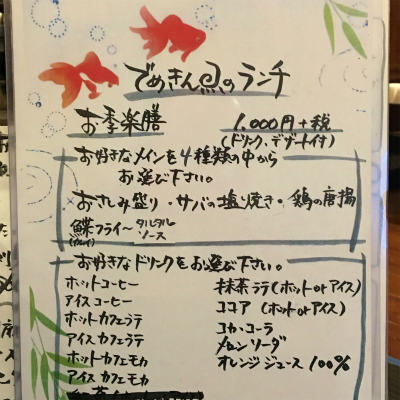 でめきん魚のランチ
お季楽膳 1,000円+税
(ドリンク、デザート付)
お好きなメインを4種類の中から
お選び下さい。
おさしみ盛り・サバの塩焼き・鶏の唐揚
鰈フライ〜タルタルソース
(カレイ)
お好きなドリンクをお選び下さい。
ホットコーヒー
アイスコーヒー
ホットカフェラテ
アイスカフェラテ
ホットカフェモカ
アイスカフェモカ
抹茶ラテ(ホットorアイス)
ココア(ホットorアイス)
コカ・コーラ
メロンソーダ
オレンジジュース100%